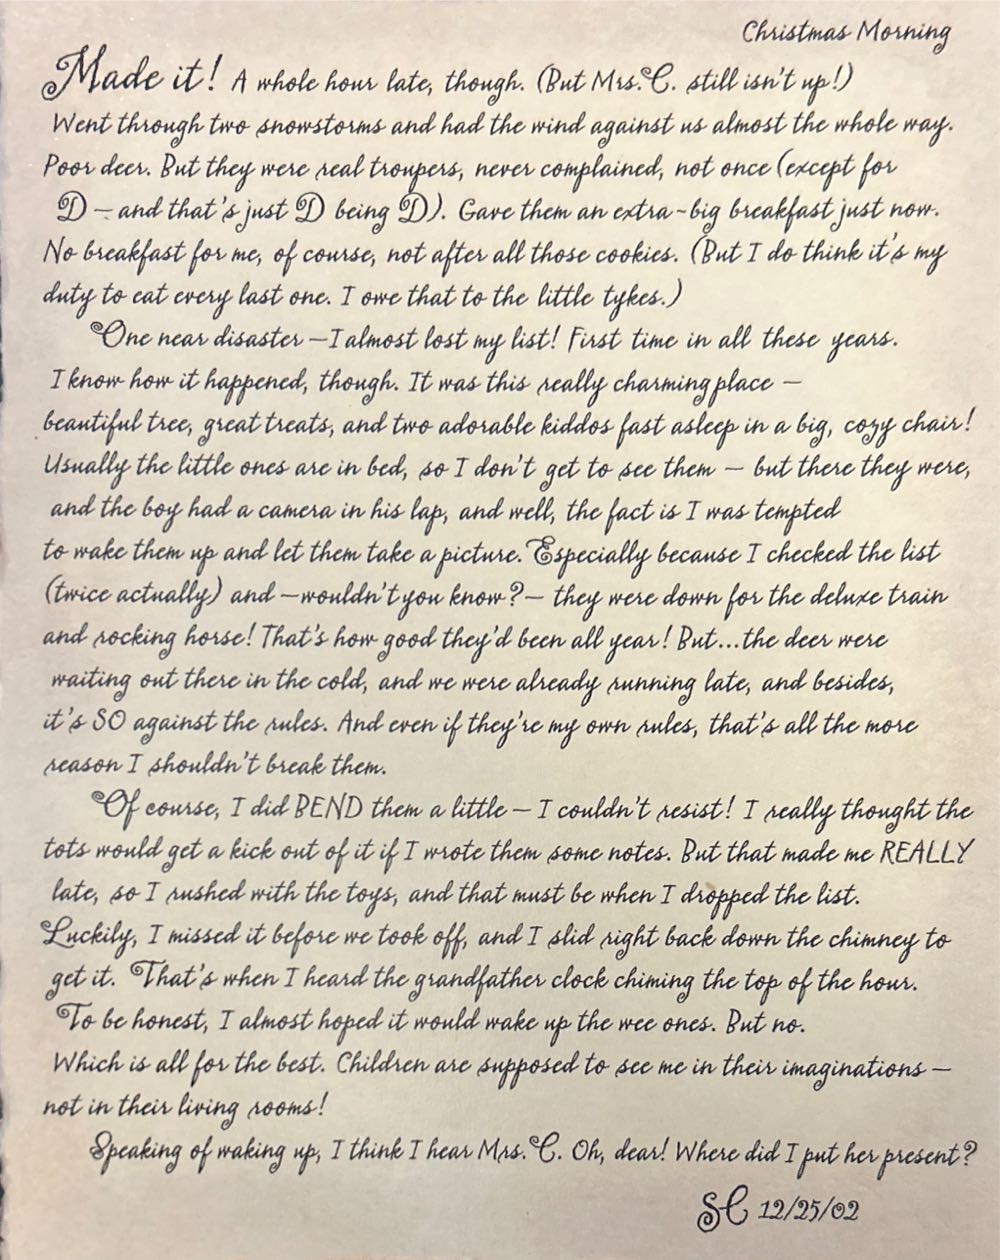 Christmas Morning
Made it! A whole hour late, though. (But Mrs. C. still isn't up!)
Went through two snowstorms and had the wind against us almost the whole way.
Poor deer. But they were real troupers, never complained, not once (except for
D – and that's just D being D). Gave them an extra-big breakfast just now.
No breakfast for me, of course, not after all those cookies. (But I do think it's my
duty to eat every last one. I owe that to the little tykes.)
One near disaster – I almost lost my list! First time in all these years.
I know how it happened, though. It was this really charming place –
beautiful tree, great treats, and two adorable kiddos fast asleep in a big, cozy chair!
Usually the little ones are in bed, so I don't get to see them – but there they were,
and the boy had a camera in his lap, and well, the fact is I was tempted
to wake them up and let them take a picture. Especially because I checked the list
(twice actually) and – wouldn't you know? – they were down for the deluxe train
and rocking horse! That's how good they'd been all year! But...the deer were
waiting out there in the cold, and we were already running late, and besides,
it's SO against the rules. And even if they're my own rules, that's all the more
reason I shouldn't break them.
Of course, I did BEND them a little – I couldn't resist! I really thought the
tots would get a kick out of it if I wrote them some notes. But that made me REALLY
late, so I rushed with the toys, and that must be when I dropped the list.
Luckily, I missed it before we took off, and I slid right back down the chimney to
get it. That's when I heard the grandfather clock chiming the top of the hour.
To be honest, I almost hoped it would wake up the wee ones. But no.
Which is all for the best. Children are supposed to see me in their imaginations –
not in their living rooms!
Speaking of waking up, I think I hear Mrs. C. Oh, dear! Where did I put her present?
SC 12/25/02